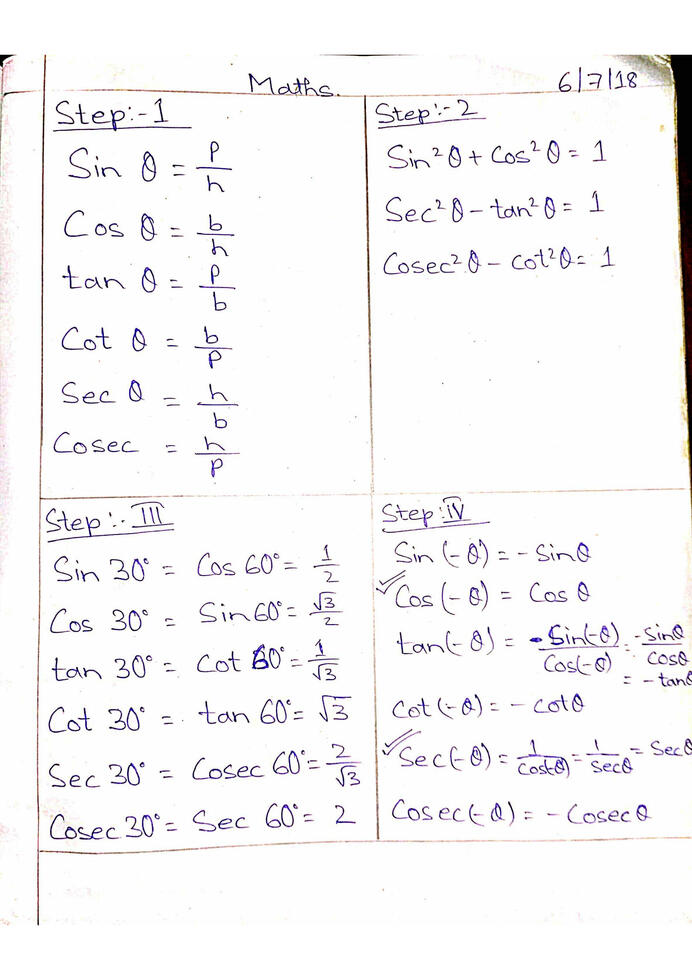 Maths. 6/7/18
Step:-1
Sin θ = p/h
Cos θ = b/h
tan θ = p/b
Cot θ = b/p
Sec θ = h/b
Cosec = h/p
Step:-2
Sin²θ + Cos²θ = 1
Sec²θ - tan²θ = 1
Cosec²θ - cot²θ = 1
Step:- III
Sin 30° = Cos 60° = 1/2
Cos 30° = Sin 60° = √3/2
tan 30° = Cot 60° = 1/√3
Cot 30° = tan 60° = √3
Sec 30° = Cosec 60° = 2/√3
Cosec 30° = Sec 60° = 2
Step: IV
Sin(-θ) = - Sinθ
Cos(-θ) = Cos θ
tan(-θ) = -Sin(-θ)/Cos(-θ) = -Sinθ/Cosθ
= -tanθ
Cot(-θ) = - cotθ
Sec(-θ) = 1/Cos(-θ) = 1/Secθ = Secθ
Cosec(-θ) = - Cosecθ